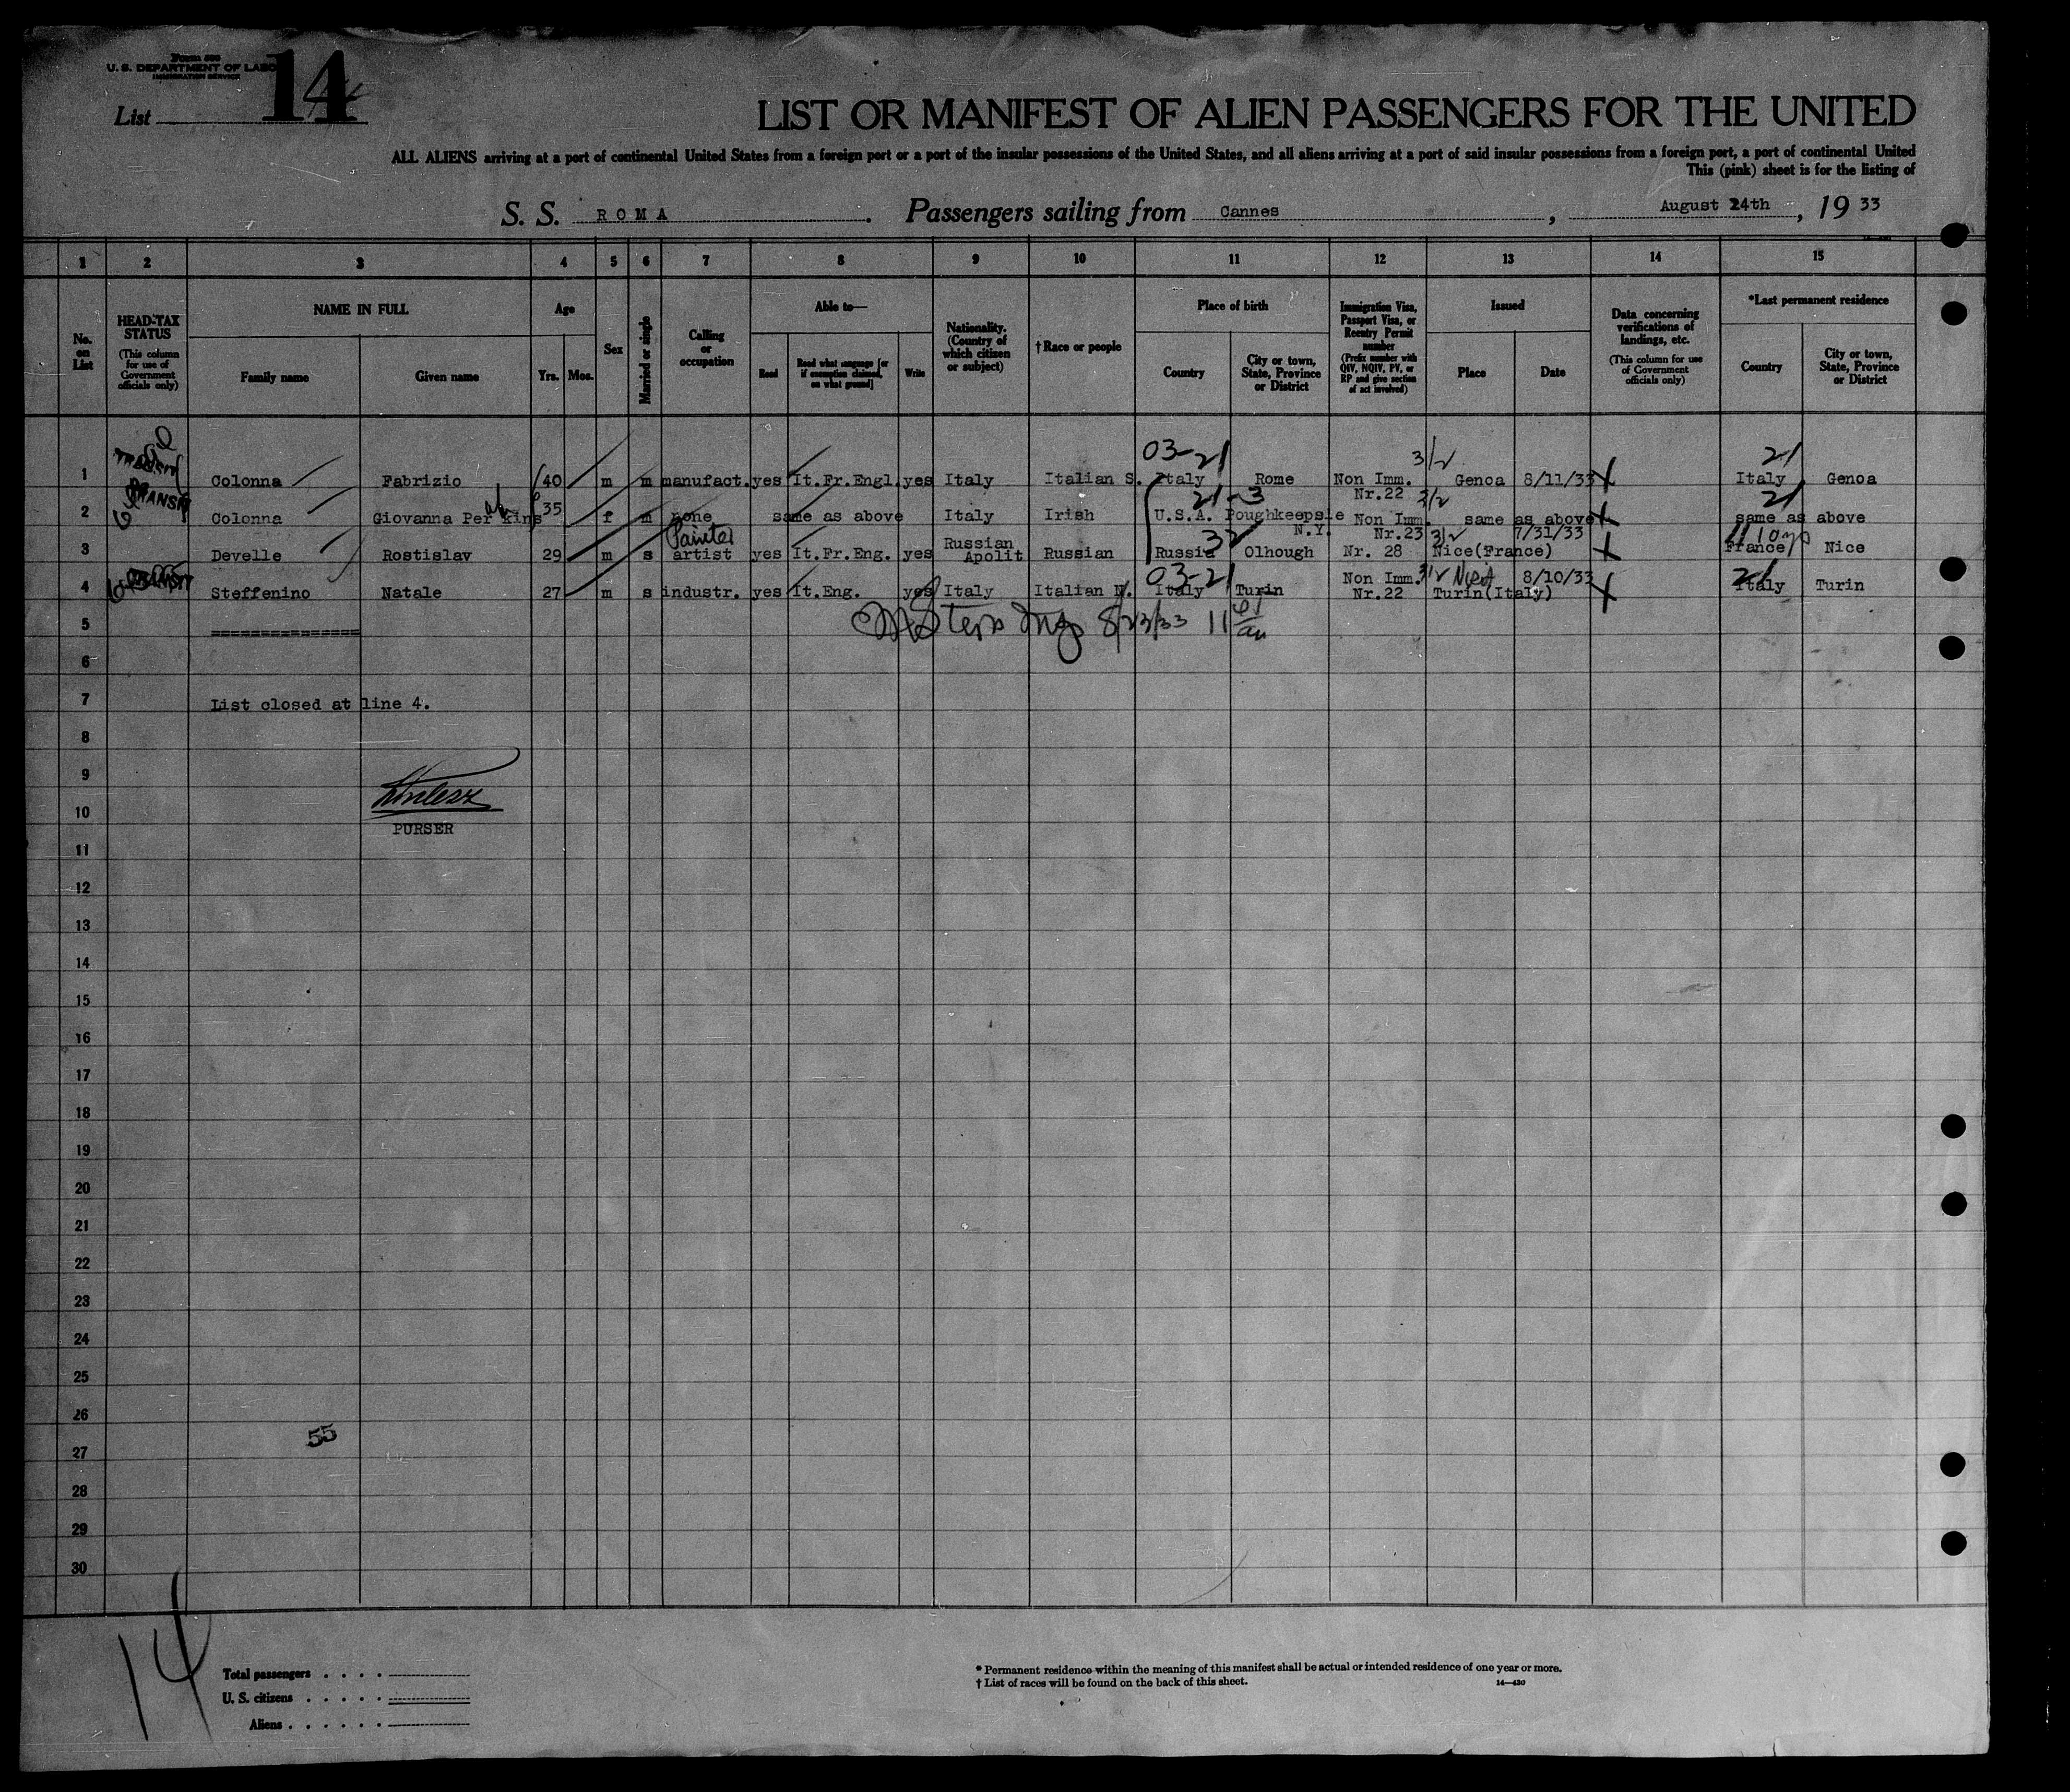 Form 500
U. S. DEPARTMENT OF LABO
IMMIGRATION SERVICE
List 14
LIST OR MANIFEST OF ALIEN PASSENGERS FOR THE UNITED
ALL ALIENS arriving at a port of continental United States from a foreign port or a port of the insular possessions of the United States, and all aliens arriving at a port of said insular possessions from a foreign port, a port of continental United
This (pink) sheet is for the listing of
S. S. ROMA. Passengers sailing from Cannes, August 24th, 1933
1 2 3 4 5 6 7 8 9 10 11 12 13 14 15
No. on List
HEAD-TAX STATUS (This column for use of Government officials only)
NAME IN FULL
Family name
Given name
Age
Yrs. Mos.
Sex
Married or single
Calling or occupation
Able to—
Read
Read what language [or if exemption claimed, on what ground]
Write
Nationality. (Country of which citizen or subject)
†Race or people
Place of birth
Country
City or town, State, Province or District
Immigration Visa, Passport Visa, or Reentry Permit number (Prefix number with QIV, NQIV, PV, or RP and give section of act involved)
Issued
Place
Date
Data concerning verifications of landings, etc. (This column for use of Government officials only)
*Last permanent residence
Country
City or town, State, Province or District
03-21 3/2 21
1 TRANSIT Colonna Fabrizio 40 m m manufact. yes It.Fr.Engl. yes Italy Italian S. Italy Rome Non Imm. Nr.22 Genoa 8/11/33 Italy Genoa
21-3 3/2 21
2 TRANSIT Colonna Giovanna Perkins 35 f m none same as above Italy Irish U.S.A. Poughkeepsie N.Y. Non Imm. Nr.23 same as above same as above
Painter 32 3/2 11 10 yrs
3 Develle Rostislav 29 m s artist yes It.Fr.Eng. yes Russian Apolit Russian Russia Olhough Nr. 28 Nice(France) 7/31/33 France Nice
03-21 3/2 21
4 TRANSIT Steffenino Natale 27 m s industr. yes It.Eng. yes Italy Italian N. Italy Turin Non Imm. Nr.22 Turin(Italy) 8/10/33 Italy Turin
5 ===============
8/23/33 11
6
7 List closed at line 4.
8
9
10
PURSER
11
12
13
14
15
16
17
18
19
20
21
22
23
24
25
26
55
27
28
29
30
14
Total passengers . . . .
U. S. citizens . . . . .
Aliens . . . . . .
* Permanent residence within the meaning of this manifest shall be actual or intended residence of one year or more.
† List of races will be found on the back of this sheet.
14—430